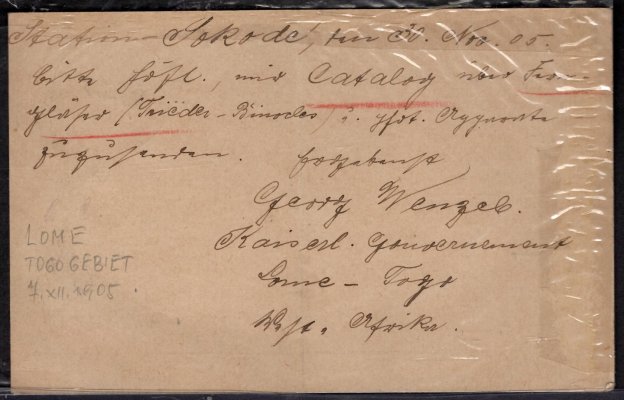 Station Sokodé, den 30. Nov. 05.
Bitte höfl., mir Catalog über Fern-
gläser (Triëder-Binocles) u. phot. Apparate
zuzusenden. Ergebenst
Georg Wenzel.
Kaiserl. Gouvernement
Lome - Togo
West-Afrika.
LOME
TOGOGEBIET
7.XII.1905